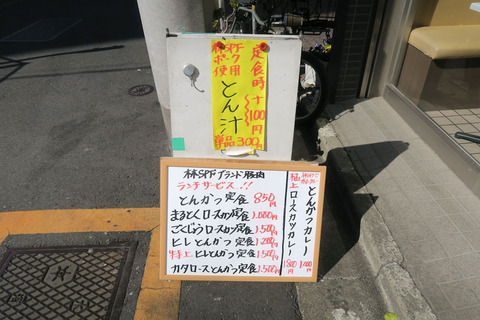 定食時
+100円
林SPF
ポーク
使用
とん汁
単品300円
林SPFブランド豚肉
ランチサービス!!
とんかつ定食 850円
まるとくロースカツ定食 1,000円
ごくじょうロースカツ定食 1,500円
ヒレとんかつ定食 1,200円
特上ヒレとんかつ定食 1,500円
カタロースとんかつ定食 1,500円
とんかつカレー
1,000
極上ロースカツカレー